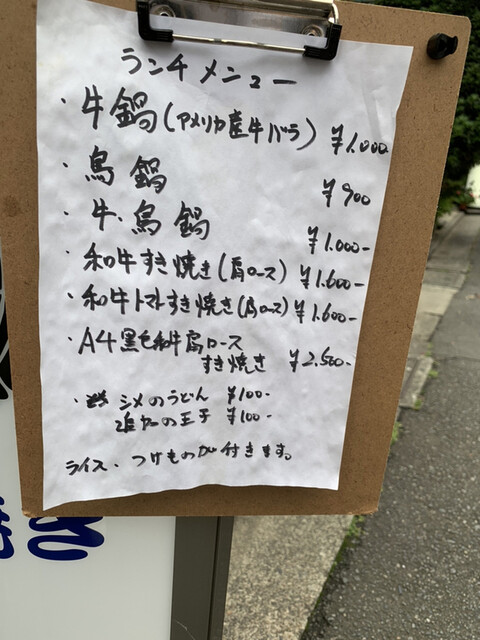 ランチメニュー
・牛鍋(アメリカ産牛バラ) ¥1.000
・鳥鍋 ¥900
・牛・鳥鍋 ¥1.000-
・和牛すき焼き(肩ロース) ¥1.600-
・和牛トマトすき焼き(肩ロース) ¥1.600-
・A4黒毛和牛肩ロース
すき焼き ¥2.500-
・シメのうどん ¥100-
追加の玉子 ¥100-
ライス、つけものが付きます。